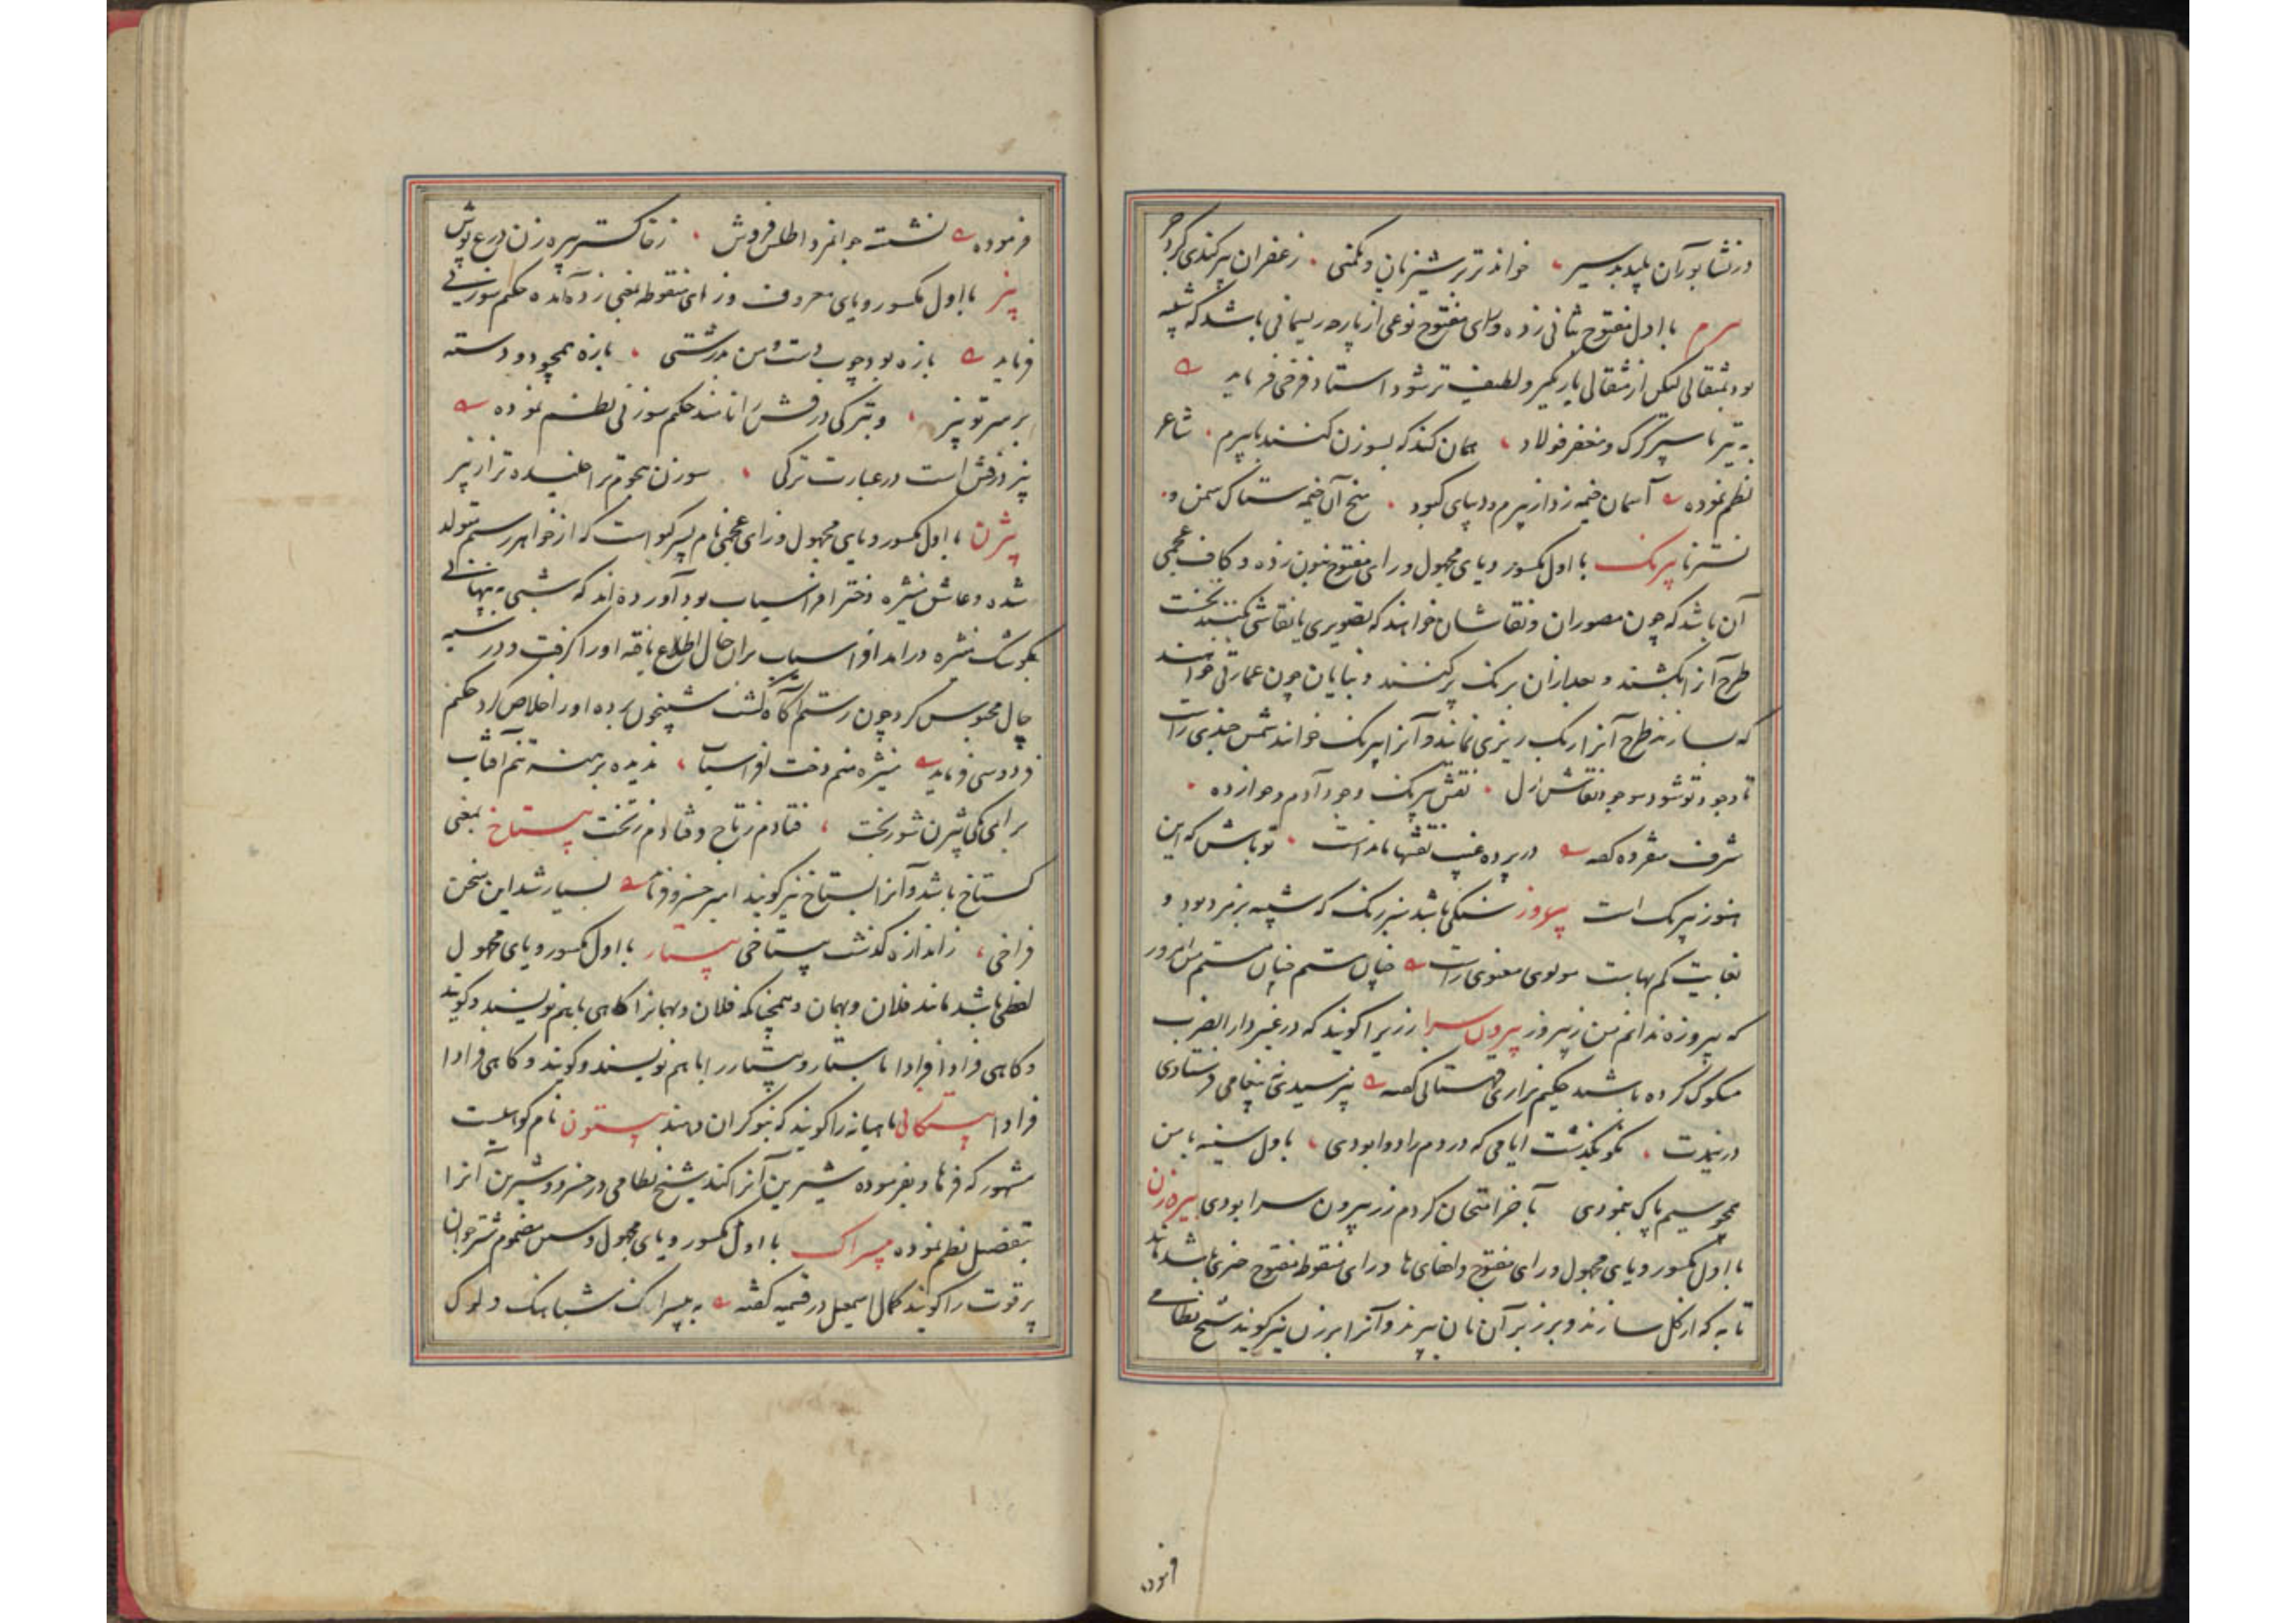 در نشابور آن پلید بد سیر خواند تزیر شیزنان و مکنی زعفران بیر کندی کرد
بیرم با اول مفتوح بثانی زده و رای مفتوح نوعی از پارچه ریسمانی باشد که شبیه
بود بمثقالی لیکن از مثقالی باریکتر و لطیف تر شود استاد فرخی فرماید
به تیر با سپر کرک و مغفر فولاد همان کند که بسوزن کنند با بیرم شاعر
نظم نموده آسمان خیمه زد از بیرم و دیبای کبود میخ آن خیمه ستاک سمن و
نسترنا بیرنک با اول مکسور و یای مجهول و رای مفتوح بنون زده و کاف عجمی
آن باشد که چون مصوران و نقاشان خواهند که تصویری یا نقاشی کنند نخست
طرح آنرا بکشند و بعد ازان برنک پر کنند و بنایان چون عمارتی خواهند
که بسازند طرح آنرا رنک ریزی نمایند و آنرا بیرنک خوانند شمس جندی راست
تا وجود تو شود موجود نقاش ازل نقش بیرنک وجود آدم و حوا زده
شرف سفروه گفته در پرده غیب نقشها مانداست تو باش که این
هنوز بیرنک است بیروز سنکی باشد سبز رنک که شبیه بزمرد بود و
بغایت کم بهاست مولوی معنوی راست چنان مستم چنان مستم من امروز
که پیروزه ندانم من ز بیروز بیرون سرا زریرا کویند که در غیر دار الضرب
مسکوک کرده باشند حکیم نزاری قهستانی گفته نپرسیدی نه پیغامی فرستادی
درین مدت نکو بگذشت ایامی که دردم را دوا بودی با دل سینه با من
همچو سیم پاک بنمودی بآخر امتحان کردم زر بیرون سرا بودی بیرهزن
با اول مکسور و یای مجهول و رای مفتوح و اخفای ها و زای منقوط مفتوح چیزی باشد مانند
تابه که از کل سازند و بر زبر آن نان پزند و آنرا بریزن نیز کویند شیخ نظامی
فرموده
فرموده نشست جوانمرد اطلس فروش ز خاکستر بیره زن درع پوش
بیز با اول مکسور و یای معروف و زای منقوطه بمعنی زده آمده حکیم سوزنی
فرماید بازه بود چوب دست من بدرشتی بازه همچو دو دسته
بر سر تو بیز و بترکی درفش را نامند حکیم سوزنی نظم نموده
بیز درفش است در عبارت ترکی سوزن هجوم ترا خلیده تر از بیز
بیژن با اول مکسور و یای مجهول و زای عجمی نام پسر کیو است که از خواهر رستم متولد
شده و عاشق منیژه دختر افراسیاب بود آورده اند که شبی به پنهانی
بکوشک منیژه درامد افراسیاب بران حال اطلاع یافته او را گرفت و در سیه
چال محبوس کرد چون رستم آگاه گشت شبیخون برده او را خلاص کرد حکیم
فردوسی فرماید منیژه منم دخت افراسیاب ندیده برهنه تنم آفتاب
برای یکی بیژن شوربخت فتادم ز تاج و فتادم ز تخت بیستاخ بمعنی
کستاخ باشد و آنرا بستاخ نیز کویند امیر خسرو فرماید بسیار شد این سخن
فراخی ز اندازه گذشت بیستاخی بیستار با اول مکسور و یای مجهول
لفظی باشد مانند فلان و بهمان و همچنانکه فلان و بهمانرا کاهی با هم نویسند و کویند
و کاهی فرادا فرادا باستار و بیستار را با هم نویسند و کویند و کاهی فرادا
فرادا بیستکانی ماهیانه را کویند که بنوکران دهند بیستون نام کوهیست
مشهور که فرهاد بفرموده شیرین آنرا کند شیخ نظامی در خسرو و شیرین آنرا
بتفصیل نظم نموده بیسراک با اول مکسور و یای مجهول و سین مضموم شتر جوان
پر قوت را کویند کمال اسمعیل در قسمیه گفته به بیسراک شباهنک و لوک